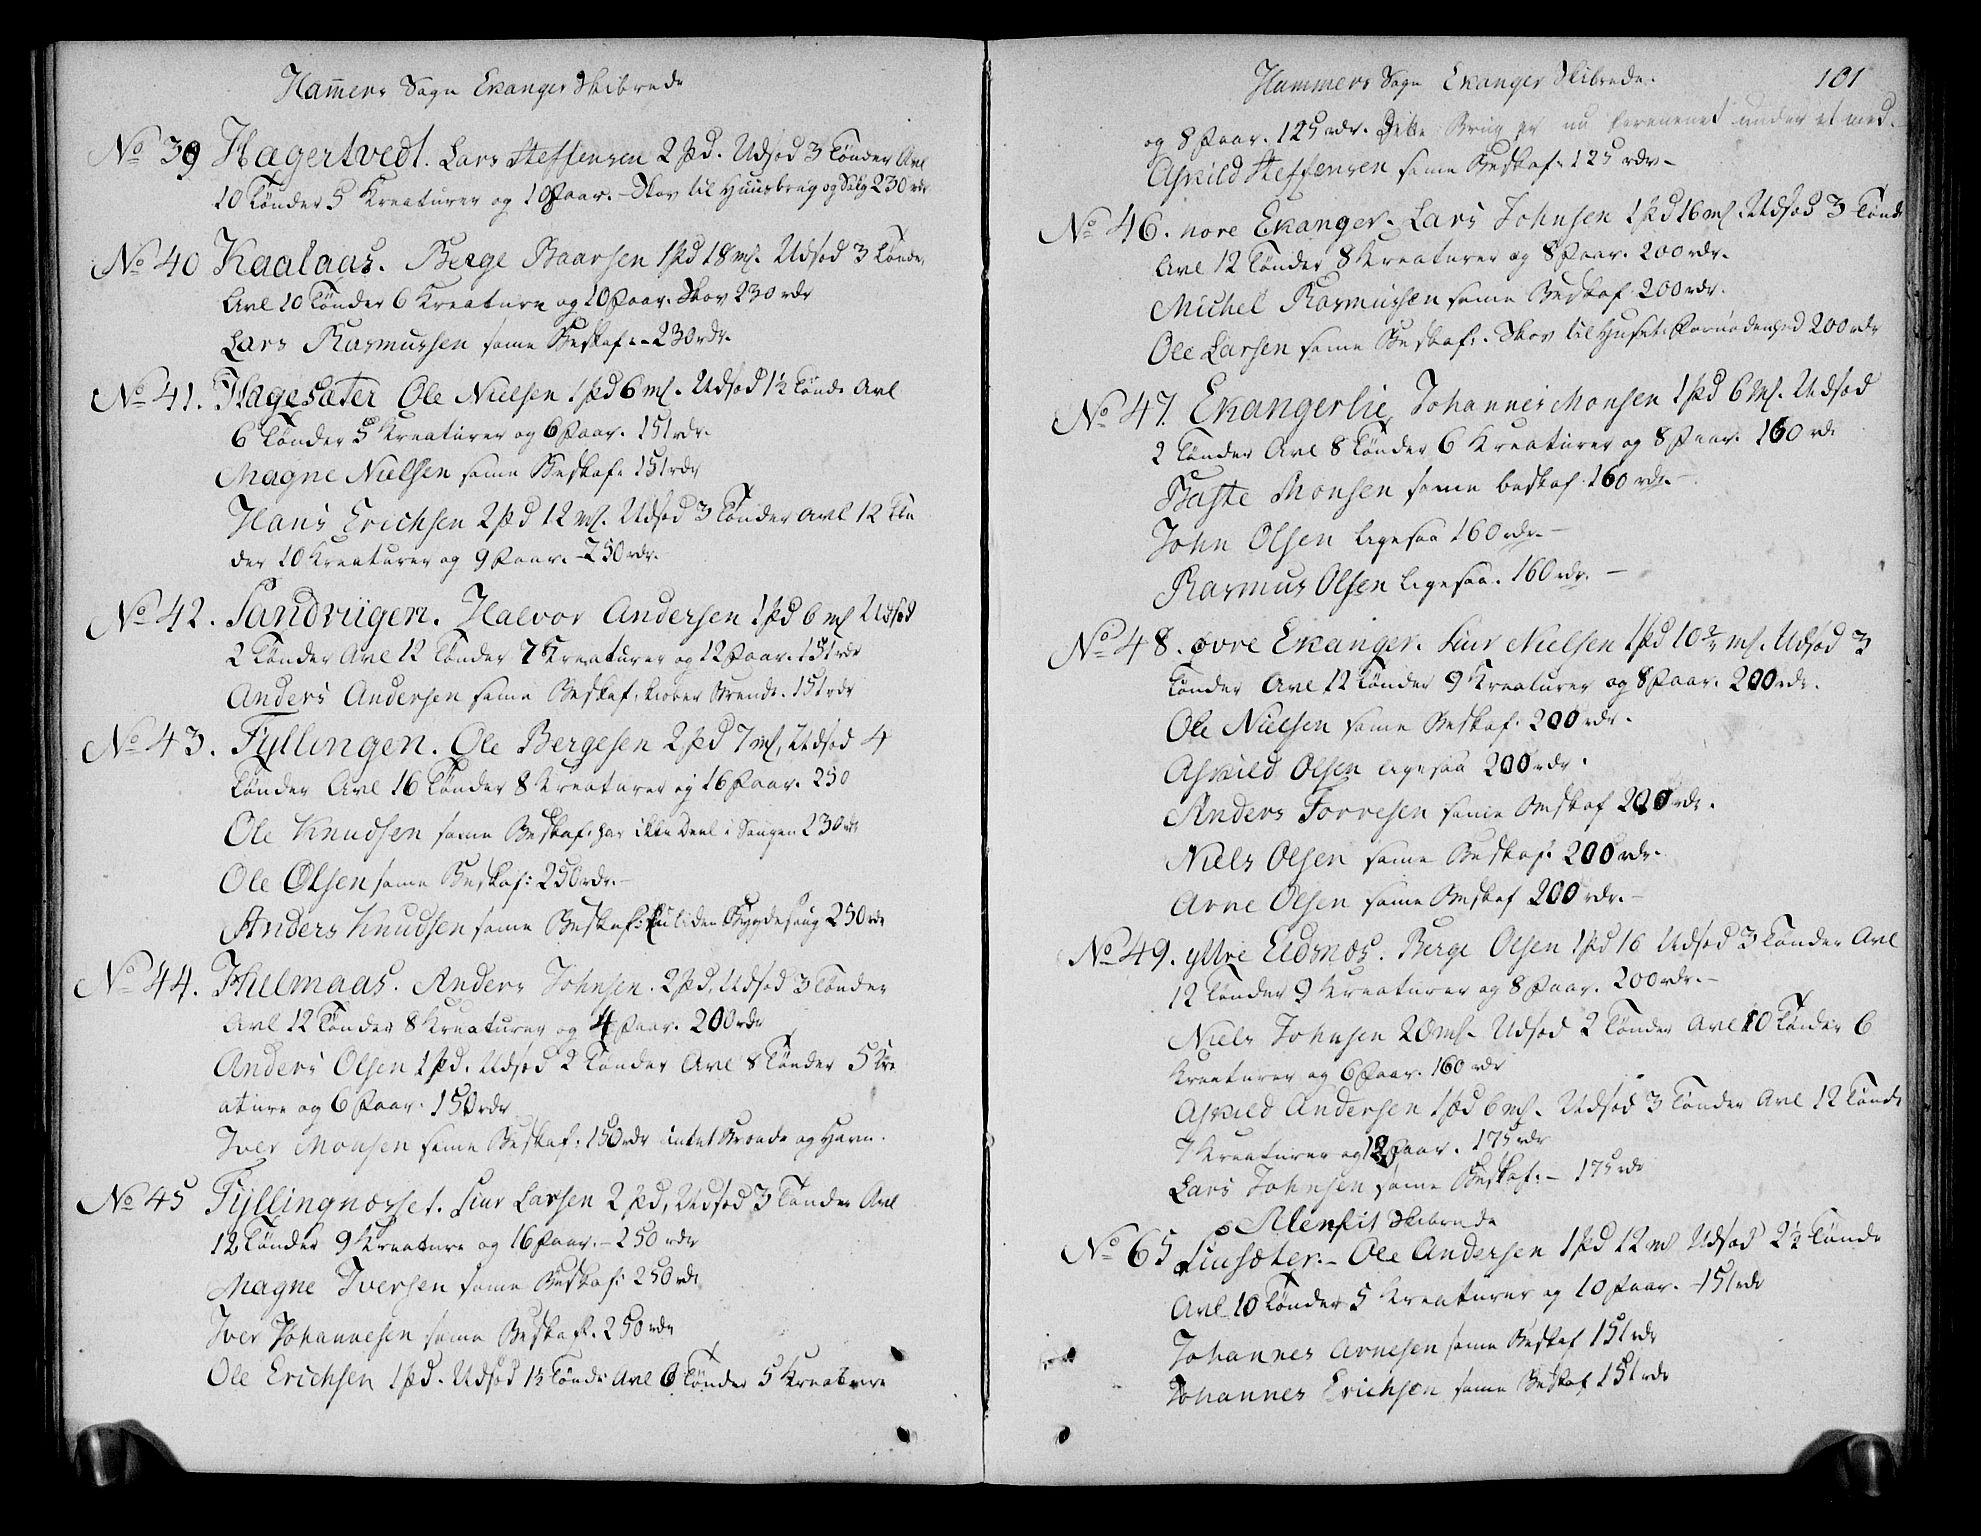 Hamers Sogn Ekanger Skibrede
No 39 Hagertvedt. Lars Steffensen 2 Pd. Udsød 3 Tønder Avl
10 Tønder 5 Kreaturer og 10 Faar. - Skov til Huusbrug og Salg 230 rdr
No 40 Kaalaas. Berge Baarsen 1 Pd 18 mk. Udsød 3 Tønder
Avl 10 Tønder 6 Kreature og 10 Faar. Skov 230 rdr
Lars Rasmussen same Beskaf: - 230 rdr.
No 41. Hagesater Ole Nielsen 1 Pd 6 mk. Udsød 1½ Tønde Avl
6 Tønder 5 Kreaturer og 6 Faar. 151 rdr.
Magne Nielsen same Beskaf: 151 rdr
Hans Erichsen 2 Pd 12 mk. Udsød 3 Tønder Avl 12 Tøn
der 10 Kreaturer og 9 Faar. - 250 rdr.
No 42. Sandviigen. Halvor Andersen 1 Pd 6 mk Udsød
2 Tønder Avl 12 Tønder 7 Kreaturer og 12 Faar. 151 rdr
Anders Andersen same Beskaf. kiøber Brende. 151 rdr
No 43. Fyllingen. Ole Bergesen 2 Pd 7 mk, Udsød 4
Tønder Avl 16 Tønder 8 Kreaturer og 16 Faar. 250
Ole Knudsen same Beskaf: har ikke Deel i Saugen 230 rdr
Ole Olsen same Beskaf: 250 rdr. -
Anders Knudsen same Beskaf: liden Bygdesaug 250 rdr
No 44. Hielmaas. Anders Johnsen. 2 Pd, Udsød 3 Tønder
Avl 12 Tønder 8 Kreaturer og 4 Faar. 200 rdr
Anders Olsen 1 Pd. Udsød 2 Tønder Avl 8 Tønder 5 Kre
ature og 6 Faar. 150 rdr
Iver Monsen same Beskaf: 150 rdr intet Brende og Havn.
No 45 Fyllingnæsset. Siur Larsen 2 Pd, Udsød 3 Tønder Avl
12 Tønder 9 Kreature og 16 Faar. - 250 rdr
Magne Iversen same Beskaf: 250 rdr
Iver Johannesen same Beskaf. 250 rdr
Ole Erichsen 1 Pd. Udsød 1½ Tønde Avl 6 Tønder 5 Kreature
Hammers Sogn Ekanger Skibrede. 101
og 8 Faar. 125 rdr. Dette Brug er nu forenenet under et med.
Askild Steffensen same Beskaf: 125 rdr -
No 46. nore Ekanger. Lars Johnsen 1 Pd 16 mk. Udsød 3 Tønd
Avl 12 Tønder 8 Kreaturer og 8 Faar. 200 rdr.
Michel Rasmussen same Beskaf 200 rdr.
Ole Larsen same Beskaf: Skov til Huset fornødenhed 200 rdr
No 47. Ekangerlie, Johannes Monsen 1 Pd 6 mk. Udsød
2 Tønder Avl 8 Tønder 6 Kreaturer og 8 Faar. 160 rdr
Baste Monsen same beskaf 160 rdr. -
John Olsen ligesaa 160 rdr. -
Rasmus Olsen ligesaa. 160 rdr. -
No 48. øvre Ekanger. Siur Nielsen 1 Pd 10 mk. Udsød 3
Tønder Avl 12 Tønder 9 Kreaturer og 8 Faar. 200 rdr.
Ole Nielsen same Beskaf: 200 rdr.
Askild Olsen ligesaa 200 rdr.
Anders Torresen same Beskaf 200 rdr.
Niels Olsen same Beskaf: 200 rdr.
Arne Olsen same Beskaf 200 rdr. -
No 49. yttre Eidsnæs. Berge Olsen 1 Pd 16 Udsød 3 Tønder Avl
12 Tønder 9 Kreaturer og 8 Faar. 200 rdr. -
Niels Johnsen 20 mk. Udsød 2 Tønder Avl 10 Tønder 6
Kreaturer og 6 Faar. 160 rdr
Askild Andersen 1 Pd 6 mk. Udsød 3 Tønder Avl 12 Tønde
7 Kreaturer og 12 Faar. 175 rdr
Lars Johnsen same Beskaf: - 175 rdr
Alenfit Skibrede
No 65 Siusæter. - Ole Andersen 1 Pd 12 mk Udsød 2½ Tønde
Avl 10 Tønder 5 Kreaturer og 10 Faar. - 151 rdr
Johannes Arnesen same Beskaf 151 rdr
Johannes Erichsen same Beskaf 151 rdr